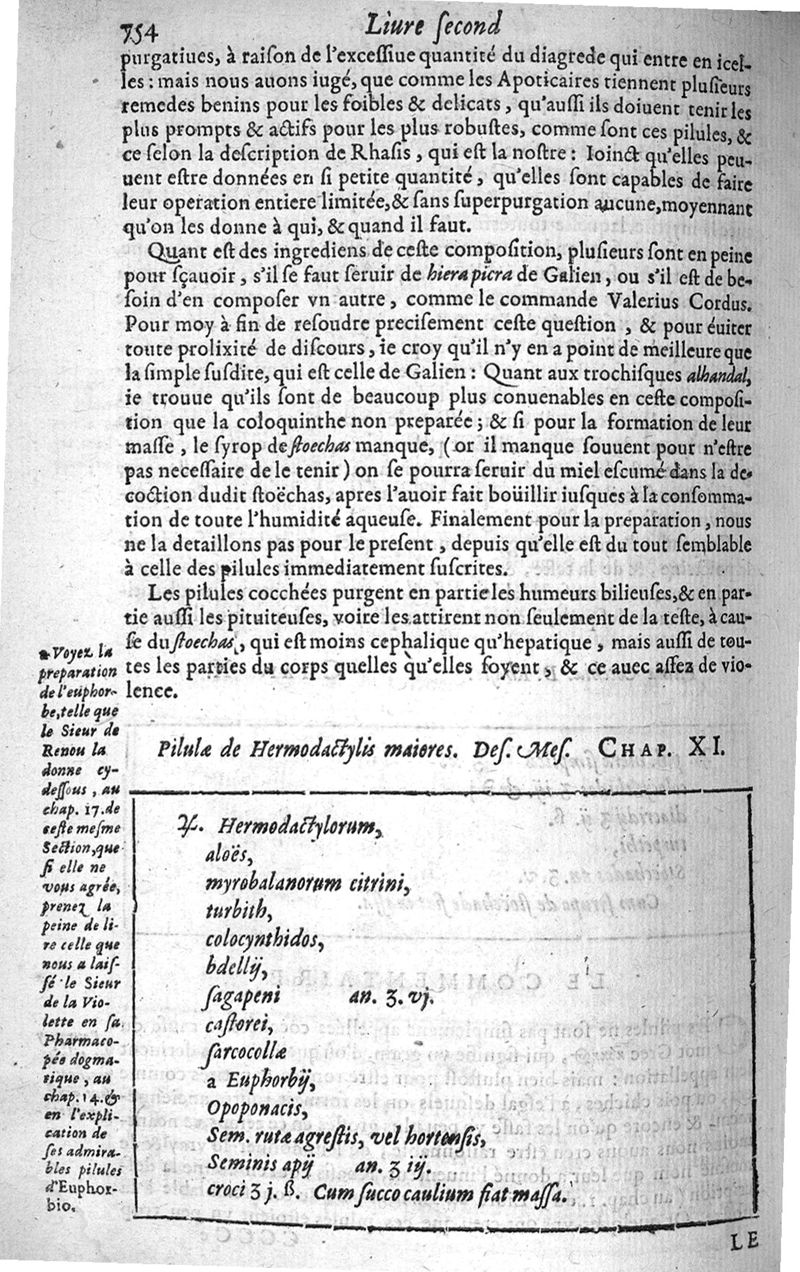 754 Liure ſecond
purgatiues, à raiſon de l'exceſſiue quantité du diagrede qui entre en icel-
les : mais nous auons iugé, que comme les Apoticaires tiennent pluſieurs
remedes benins pour les foibles & delicats, qu'auſſi ils doiuent tenir les
plus prompts & actifs pour les plus robuſtes, comme ſont ces pilules, &
ce ſelon la deſcription de Rhaſis, qui eſt la noſtre : Ioinct qu'elles peu-
uent eſtre données en ſi petite quantité, qu'elles ſont capables de faire
leur operation entiere limitée, & ſans ſuperpurgation aucune, moyennant
qu'on les donne à qui, & quand il faut.
Quant eſt des ingrediens de ceſte compoſition, pluſieurs ſont en peine
pour ſçauoir, s'il ſe faut ſeruir de hiera picra de Galien, ou s'il eſt de be-
ſoin d'en compoſer vn autre, comme le commande Valerius Cordus.
Pour moy à fin de reſoudre preciſement ceſte queſtion, & pour éuiter
toute prolixité de diſcours, ie croy qu'il n'y en a point de meilleure que
la ſimple ſuſdite, qui eſt celle de Galien : Quant aux trochiſques alhandal,
ie trouue qu'ils ſont de beaucoup plus conuenables en ceſte compoſi-
tion que la coloquinthe non preparée ; & ſi pour la formation de leur
maſſe, le ſyrop de ſtoechas manque, (or il manque ſouuent pour n'eſtre
pas neceſſaire de le tenir) on ſe pourra ſeruir du miel eſcumé dans la de-
coction dudit ſtoëchas, apres l'auoir fait boüillir iuſques à la conſomma-
tion de toute l'humidité aqueuſe. Finalement pour la preparation, nous
ne la detaillons pas pour le preſent, depuis qu'elle eſt du tout ſemblable
à celle des pilules immediatement ſuſcrites.
Les pilules cocchées purgent en partie les humeurs bilieuſes, & en par-
tie auſſi les pituiteuſes, voire les attirent non ſeulement de la teſte, à cau-
ſe du ſtoechas, qui eſt moins cephalique qu'hepatique, mais auſſi de tou-
tes les parties du corps quelles qu'elles ſoyent, & ce auec aſſez de vio-
lence.
a Voyez la
preparation
de l'euphor-
be, telle que
le Sieur de
Renou la
donne cy-
deſſous, au
chap. 17. de
ceſte meſme
Section, que
ſi elle ne
vous agrée,
prenez la
peine de li-
re celle que
nous a laiſ-
ſé le Sieur
de la Vio-
lette en ſa
Pharmaco-
pée dogma-
tique, au
chap. 14. &
en l'expli-
cation de
ſes admira-
bles pilules
d'Euphor-
bio.
Pilulæ de Hermodactylis maiores. Deſ. Meſ. CHAP. XI.
♃. Hermodactylorum,
aloës,
myrobalanorum citrini,
turbith,
colocynthidos,
bdellij,
ſagapeni an. ʒ. vj.
caſtorei,
ſarcocollæ
a Euphorbij,
Opoponacis,
Sem. rutæ agreſtis, vel hortenſis,
Seminis apij an. ʒ iij.
croci ʒ j. ß. Cum ſucco caulium fiat maſſa.
LE